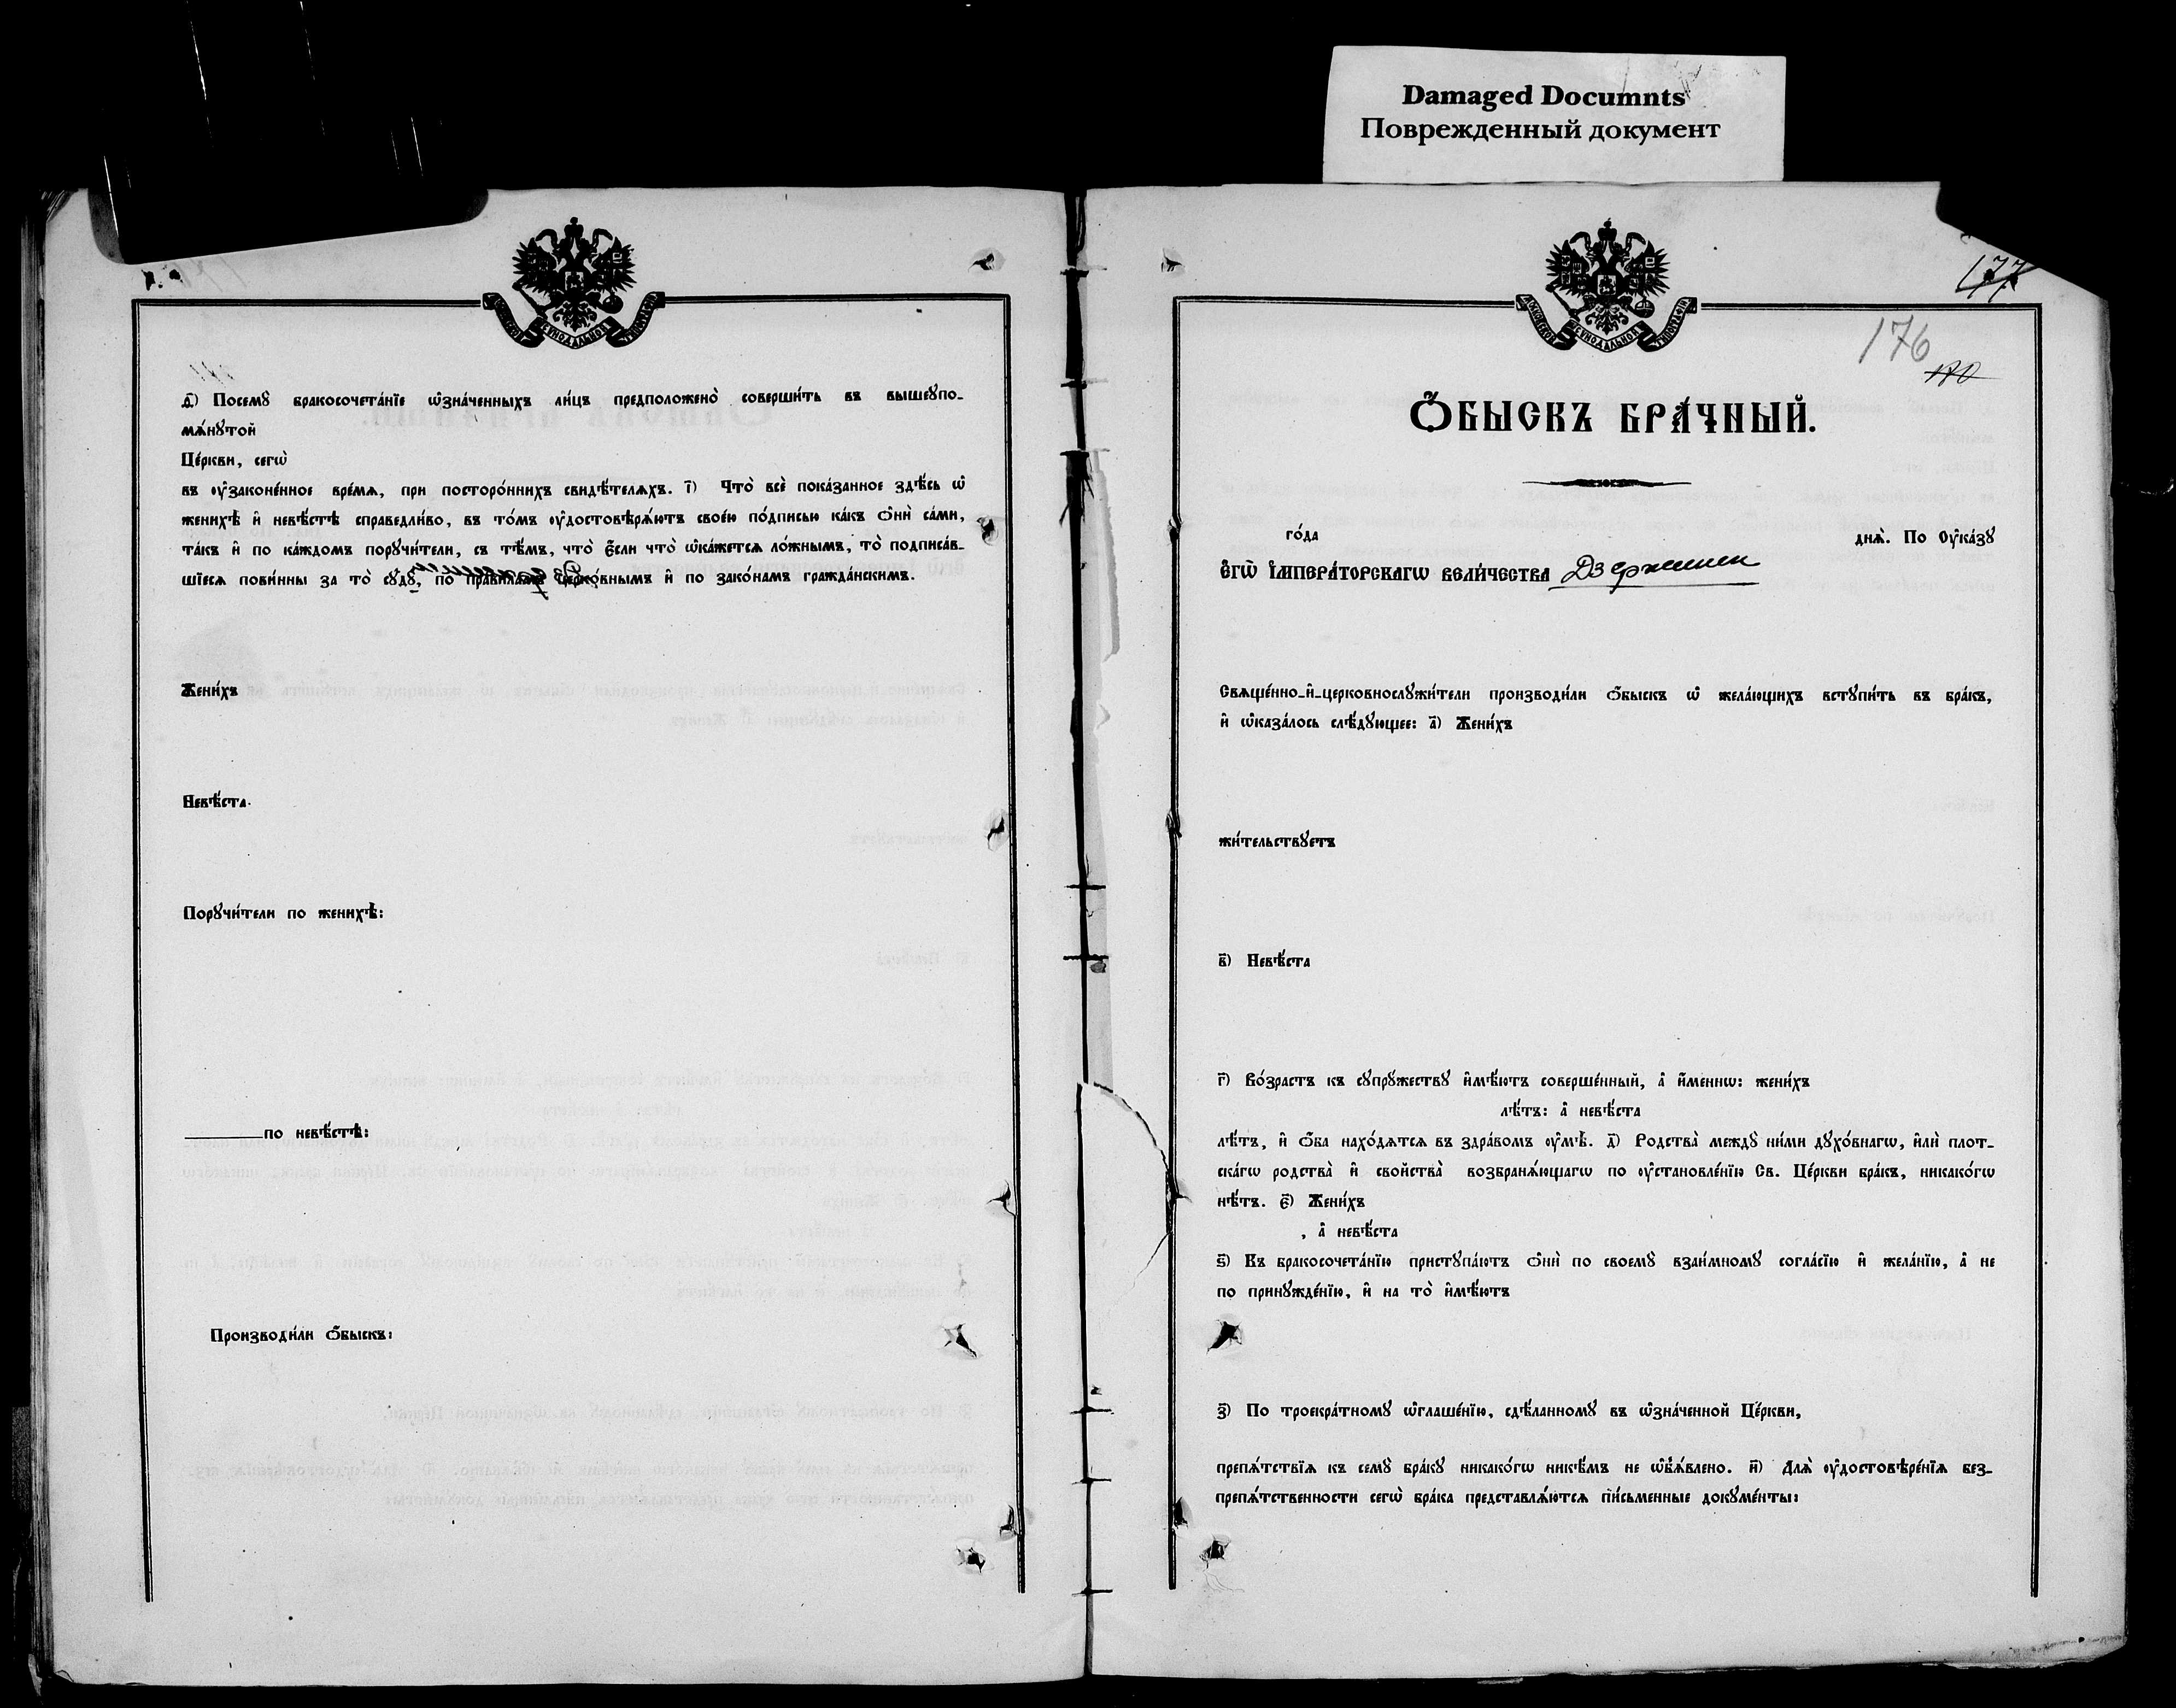 Damaged Documnts
Поврежденный документ
МОСКОВСКОЙ СѴНОДАЛЬНОЙ ТИПОГРАФІИ
д҃) Посемꙋ̀ бракосочета́нїе ѡ҆зна́ченныхъ ли́цъ предположено̀ соверши́ть въ вышеꙋпо-
мѧ́нꙋтой
Це́ркви, сегѡ̀
въ ᲂу҆законе́нное вре́мѧ, при посторо́ннихъ свидѣ́телѧхъ. і҃) Что̀ всѐ пока́занное здѣ́сь ѡ҆
женихѣ̀ и҆ невѣ́стѣ справедли́во, въ то́мъ ᲂу҆достовѣрѧ́ютъ свое́ю по́дписью ка́къ ѻ҆нѝ са́ми,
та́къ и҆ по ка́ждомъ порꙋчи́тели, съ тѣ́мъ, что̀ є҆́сли что̀ ѡ҆ка́жетсѧ ло́жнымъ, то̀ подписа́в-
шїесѧ пови́нны за то̀ сꙋдꙋ̀, по пра́виламъ церко́внымъ и҆ по зако́намъ гражда́нскимъ.
Жени́хъ
Невѣ́ста.
Порꙋчи́тели по женихѣ̀:
по невѣ́стѣ:
Производи́ли ѻ҆́быскъ:
МОСКОВСКОЙ СѴНОДАЛЬНОЙ ТИПОГРАФІИ
177
176
180
Ѻ҆́БЫСКЪ БРА́ЧНЫЙ.
го́да
днѧ̀. По Оу҆ка́зꙋ
Є҆ГѠ̀ І҆МПЕРА́ТОРСКАГѠ ВЕЛИ́ЧЕСТВА
Свѧще́нно-и҆-церковнослꙋжи́тели производи́ли ѻ҆́быскъ ѡ҆ жела́ющихъ встꙋпи́ть въ бра́къ,
и҆ ѡ҆каза́лось слѣ́дꙋющее: а҃) Жени́хъ
жи́тельствꙋетъ
в҃) Невѣ́ста
г҃) Во́зрастъ къ сꙋпрꙋ́жествꙋ и҆мѣ́ютъ соверше́нный, а҆ и҆́меннѡ: жени́хъ
лѣ́тъ: а҆ невѣ́ста
лѣ́тъ, и҆ ѻ҆́ба нахо́дѧтсѧ въ здра́вомъ ᲂу҆мѣ̀. д҃) Родства̀ междꙋ̀ ни́ми дꙋхо́внагѡ, и҆лѝ плот-
ска́гѡ родства̀ и҆ свойства̀ возбранѧ́ющагѡ по ᲂу҆становле́нїю Св. Це́ркви бра́къ, никако́гѡ
нѣ́тъ. є҃) Жени́хъ
, а҆ невѣ́ста
ѕ҃) Къ бракосочета́нїю пристꙋпа́ютъ ѻ҆нѝ по своемꙋ̀ взаи́мномꙋ согла́сїю и҆ жела́нїю, а҆ не
по принꙋжде́нїю, и҆ на то̀ и҆мѣ́ютъ
з҃) По троекра́тномꙋ ѡ҆глаше́нїю, сдѣ́ланномꙋ въ ѡ҆зна́ченной Це́ркви,
препѧ́тствїѧ къ семꙋ̀ бра́кꙋ никако́гѡ никѣ́мъ не ѡ҆б̾ѧ́влено. и҃) Длѧ̀ ᲂу҆достовѣре́нїѧ без-
препѧ́тственности сегѡ̀ бра́ка представлѧ́ютсѧ пи́сьменные докꙋме́нты: